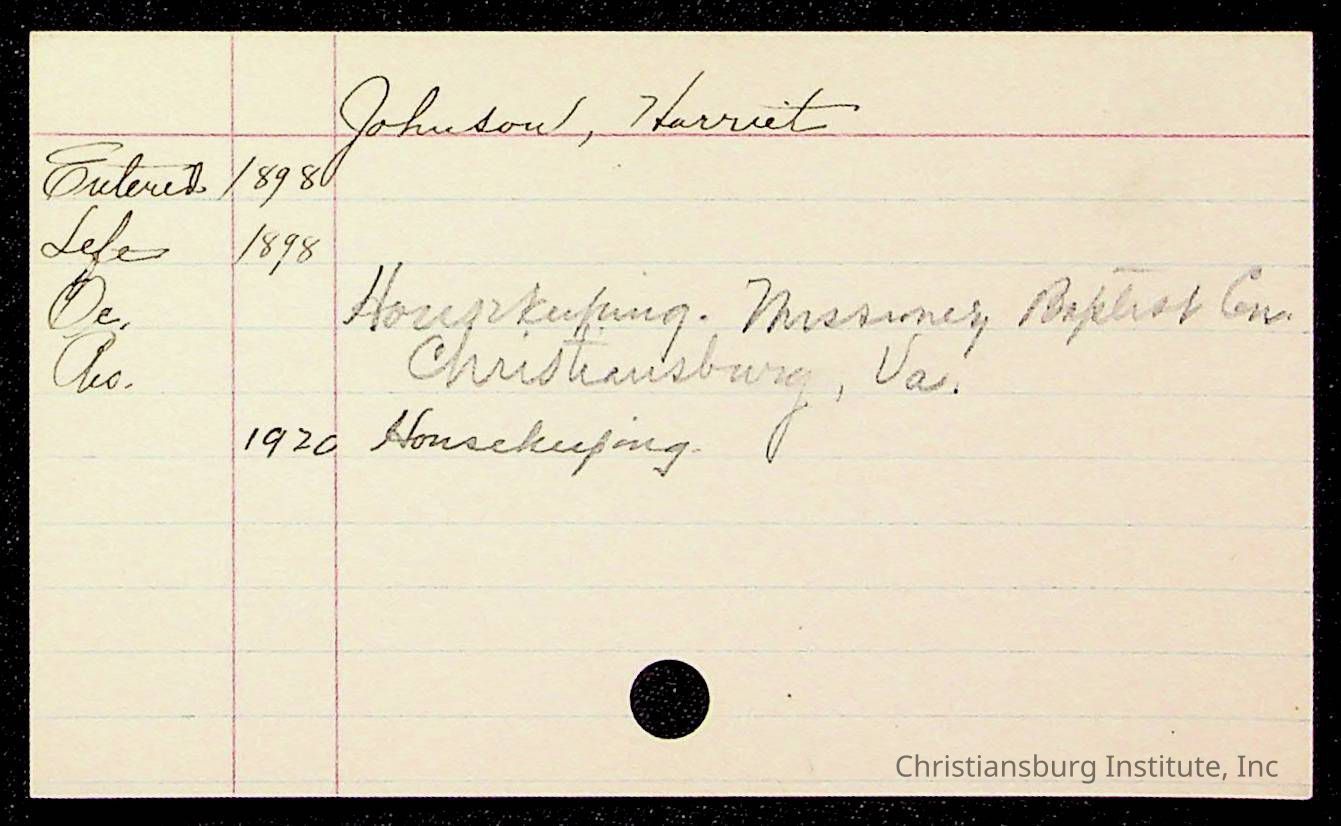 Johnson, Harriet
Entered 1898
Left 1898
Oc. Housekeeping. Missionery Baptist Con.
Christiansburg, Va.
1920 Housekeeping.
Christiansburg Institute, Inc